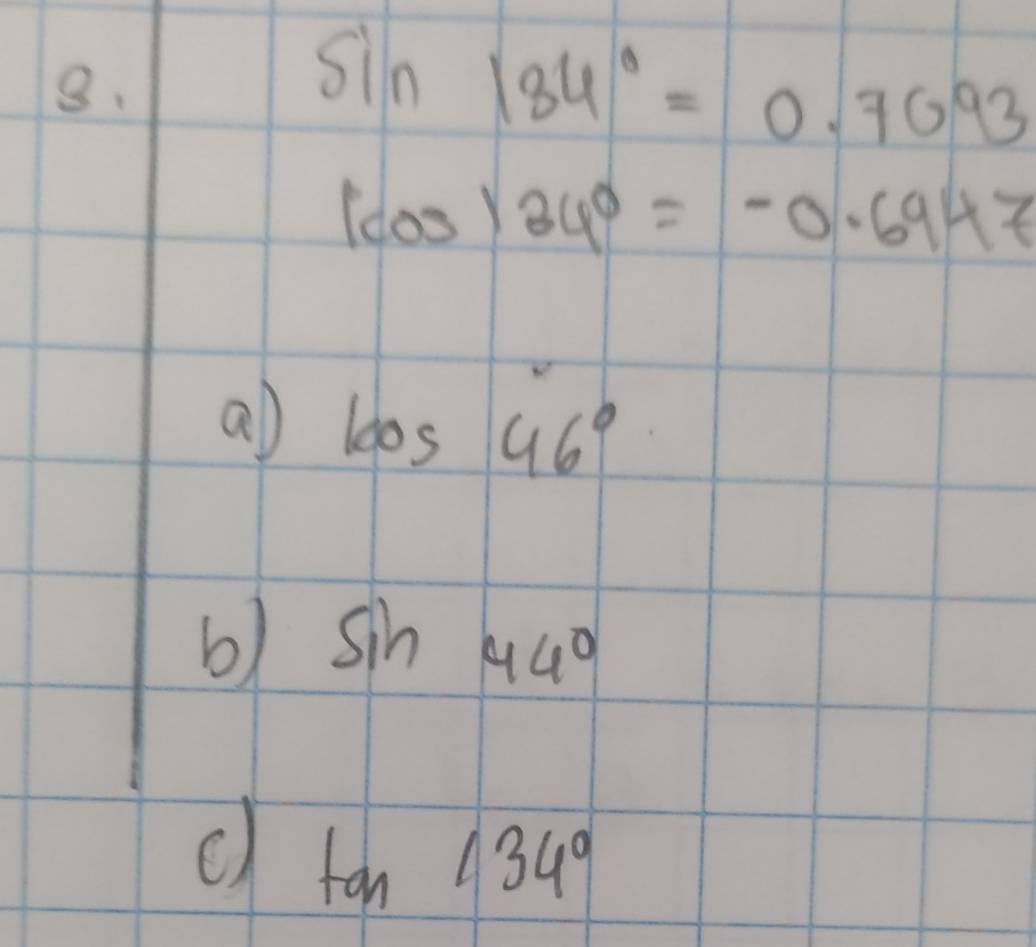 3. Sin 134° = 0.7193
Kos 134° = -0.6947
a) kos 46°
b) Sin 44°
c) tan 134°